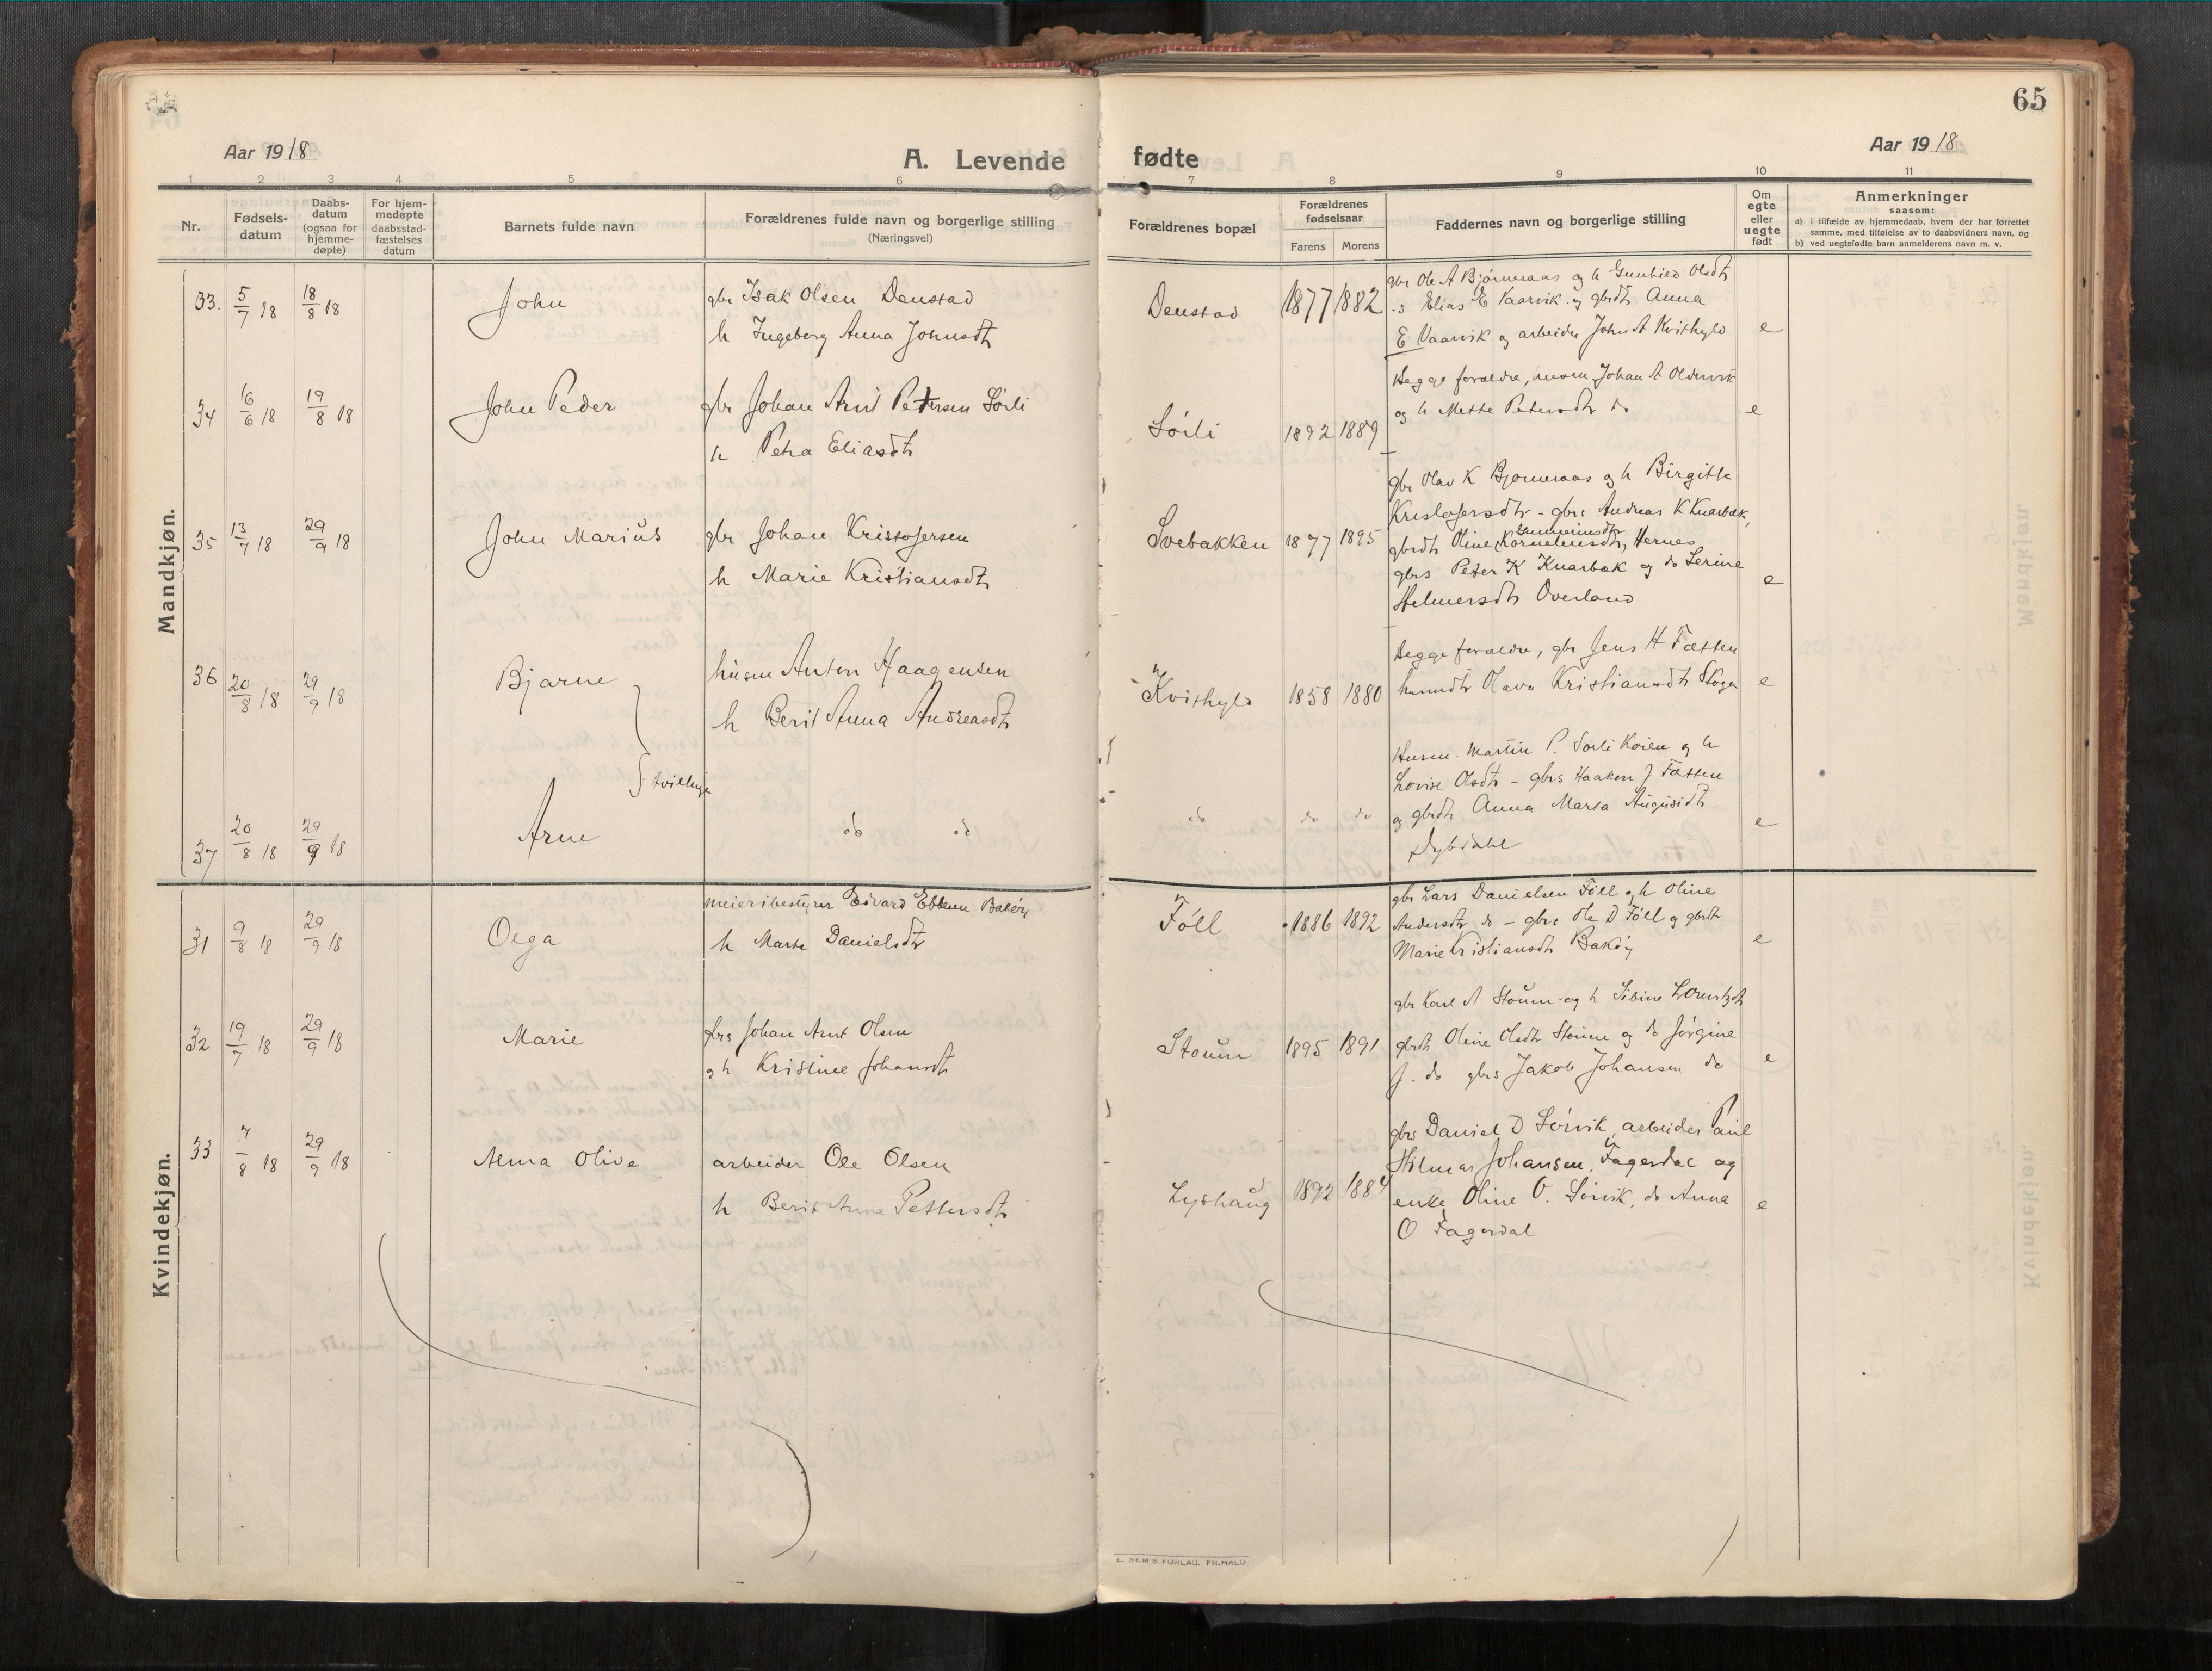 65
Aar 1918
A. Levende fødte
Aar 1918
1 2 3 4 5 6 7 8 9 10 11
Nr.
Fødsels-
datum
Daabs-
datum
(ogsaa for
hjemme-
døpte)
For hjem-
medøpte
daabsstad-
fæstelses
datum
Barnets fulde navn
Forældrenes fulde navn og borgerlige stilling
(Næringsvei)
Forældrenes bopæl
Forældrenes
fødselsaar
Farens Morens
Faddernes navn og borgerlige stilling
Om
egte
eller
uegte
født
Anmerkninger
saasom:
a) i tilfælde av hjemmedaab, hvem der har forrettet
samme, med tilføielse av to daabsvidners navn, og
b) ved uegtefødte barn anmelderens navn m. v.
Mandkjøn.
33. 5/7 18 18/8 18 John
gbr Isak Olsen Denstad
h Ingeborg Anna Johnsdtr
Denstad 1877 1882
gbr Ole A Bjørneraas og h Gunhild Olsdtr
.s Elias E Vaarvik og gbrdtr Anna
E Vaarvik og arbeider John A Kvithyld
e
34 16/6 18 19/8 18 John Peder
gbr Johan Arnt Petersen Sørli
h Petra Eliasdtr
Sørli 1892 1889
Begge forældre, husm Johan A Oldervik
og h Mette Petersdtr do
e
35 13/7 18 29/9 18 John Marius
gbr Johan Kristofersen
h Marie Kristiansdtr
Svebakken 1877 1895
gbr Olav K Bjørneraas og h Birgitte
Kristofersdtr - gbrs Andreas K Knarbak,
gbrdtr Oline Korneliusdtr, Hernes
gbrs Peter K Knarbak og do Serine
Helmersdtr Overland
e
36 20/8 18 29/9 18 Bjarne
husm Anton Haagensen
h Berit Anna Andreasdtr
Kvithyld 1858 1880
Begge forældre, gbr Jens H Fætten
husmdtr Olava Kristiansdtr
e
tvillinger
37 20/8 18 29/9 18 Arne
do do
do do do
Husm. Martin P. Sørli Køien og h
Lovise Olsdtr - gbrs Haakon J Fætten
og gbrdtr Anna Marta Augustdtr
Dybdahl
e
Kvindekjøn.
31 9/8 18 29/9 18 Olga
meieribestyrer Edvard Ebbesen Bakøy
h Marte Danielsdtr
Føll 1886 1892
gbr Lars Danielsen Føll og h Oline
Andersdtr do - gbrs Ole D Føll og gbrdtr
Marie Kristiansdtr Bakøy
e
32 19/7 18 29/9 18 Marie
gbrs Johan Arnt Olsen
og h Kristine Johansdtr
Støum 1895 1891
gbr Karl A Støum og h Sibine Lorentsdtr
gbrdtr Oline Olsdtr Støum og do Jørgine
J. do gbrs Jakob Johansen do
e
33 7/8 18 29/9 18 Alma Olive
arbeider Ole Olsen
h Berit Anna Pettersdtr
Lyshaug 1892 1884
gbrs Daniel D Sørvik, arbeider Paul
Hilmar Johansen, Fagerdal og
enke Oline O. Sørvik, do Anna
O Fagerdal
e
E. SEM'S FORLAG. FR.HALD